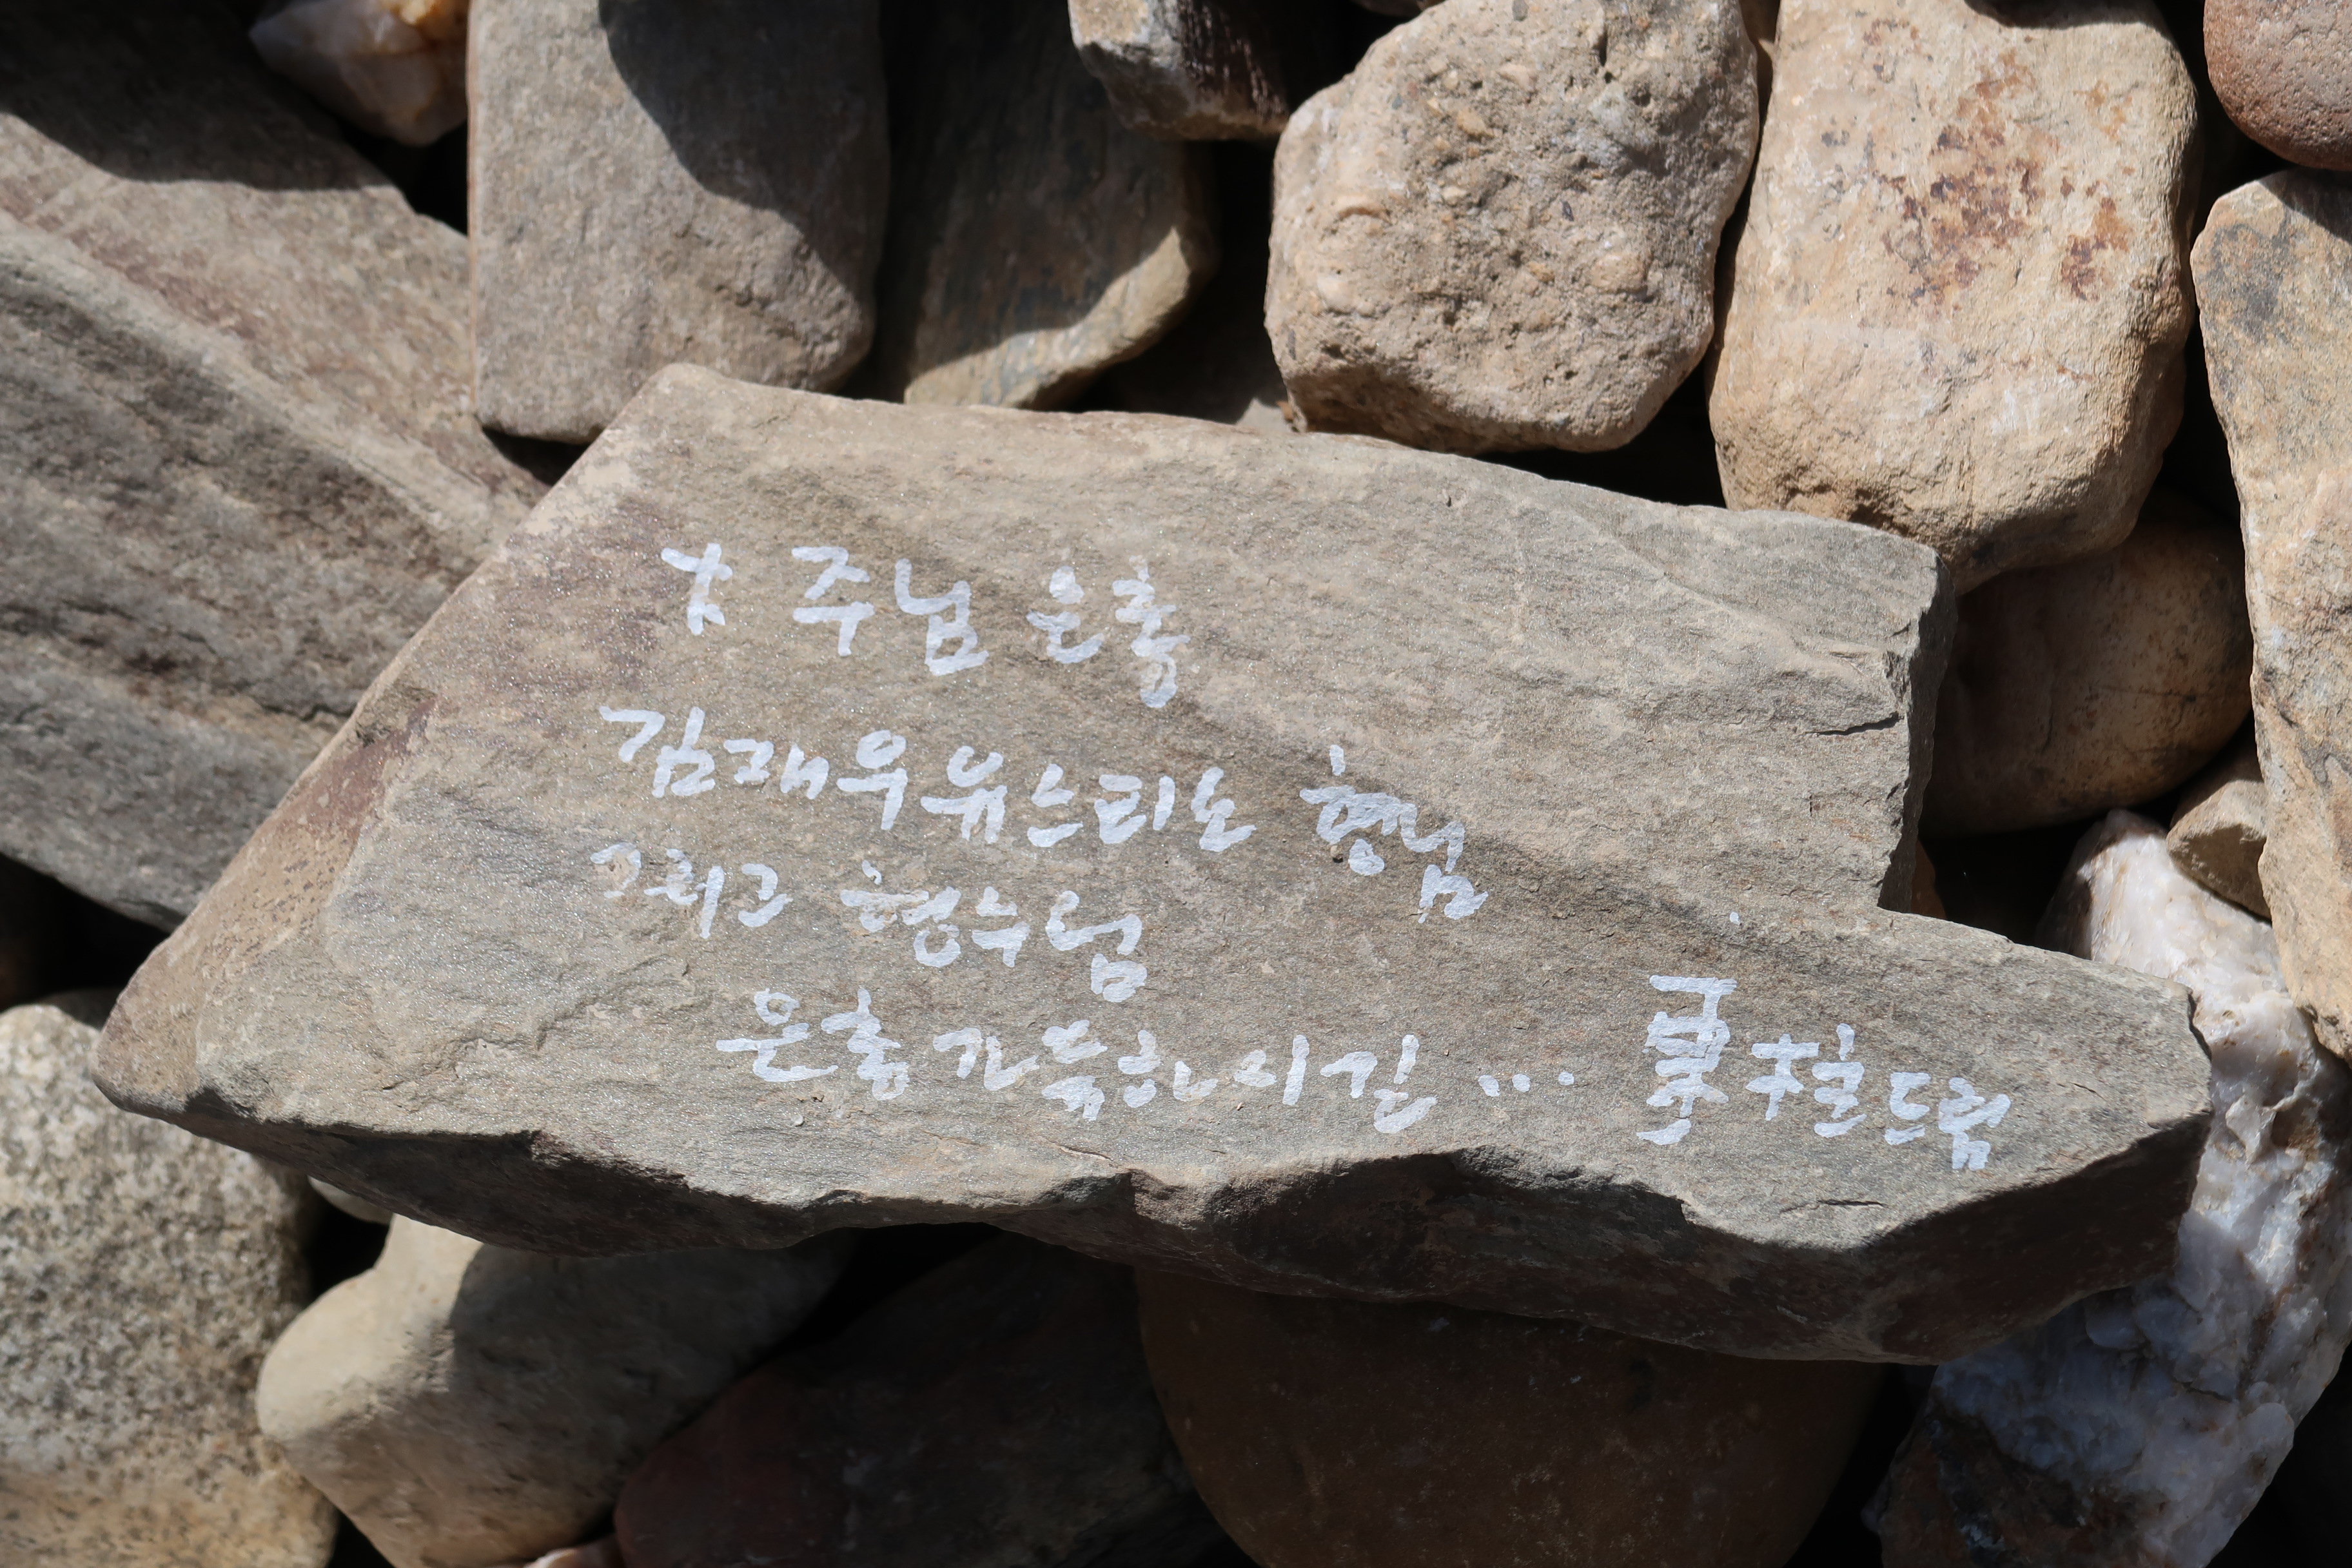 † 주님 은총
김재우유스티노 형님
그리고 형수님
은총가득하시길... 드림